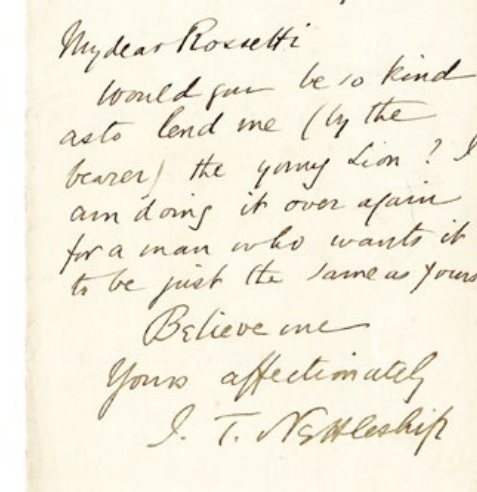 My dear Rossetti
would you be so kind
as to lend me (by the
bearer) the young Lion? I
am doing it over again
for a man who wants it
to be just the same as yours
Believe me
Yours affectionately
J. T. Nettleship